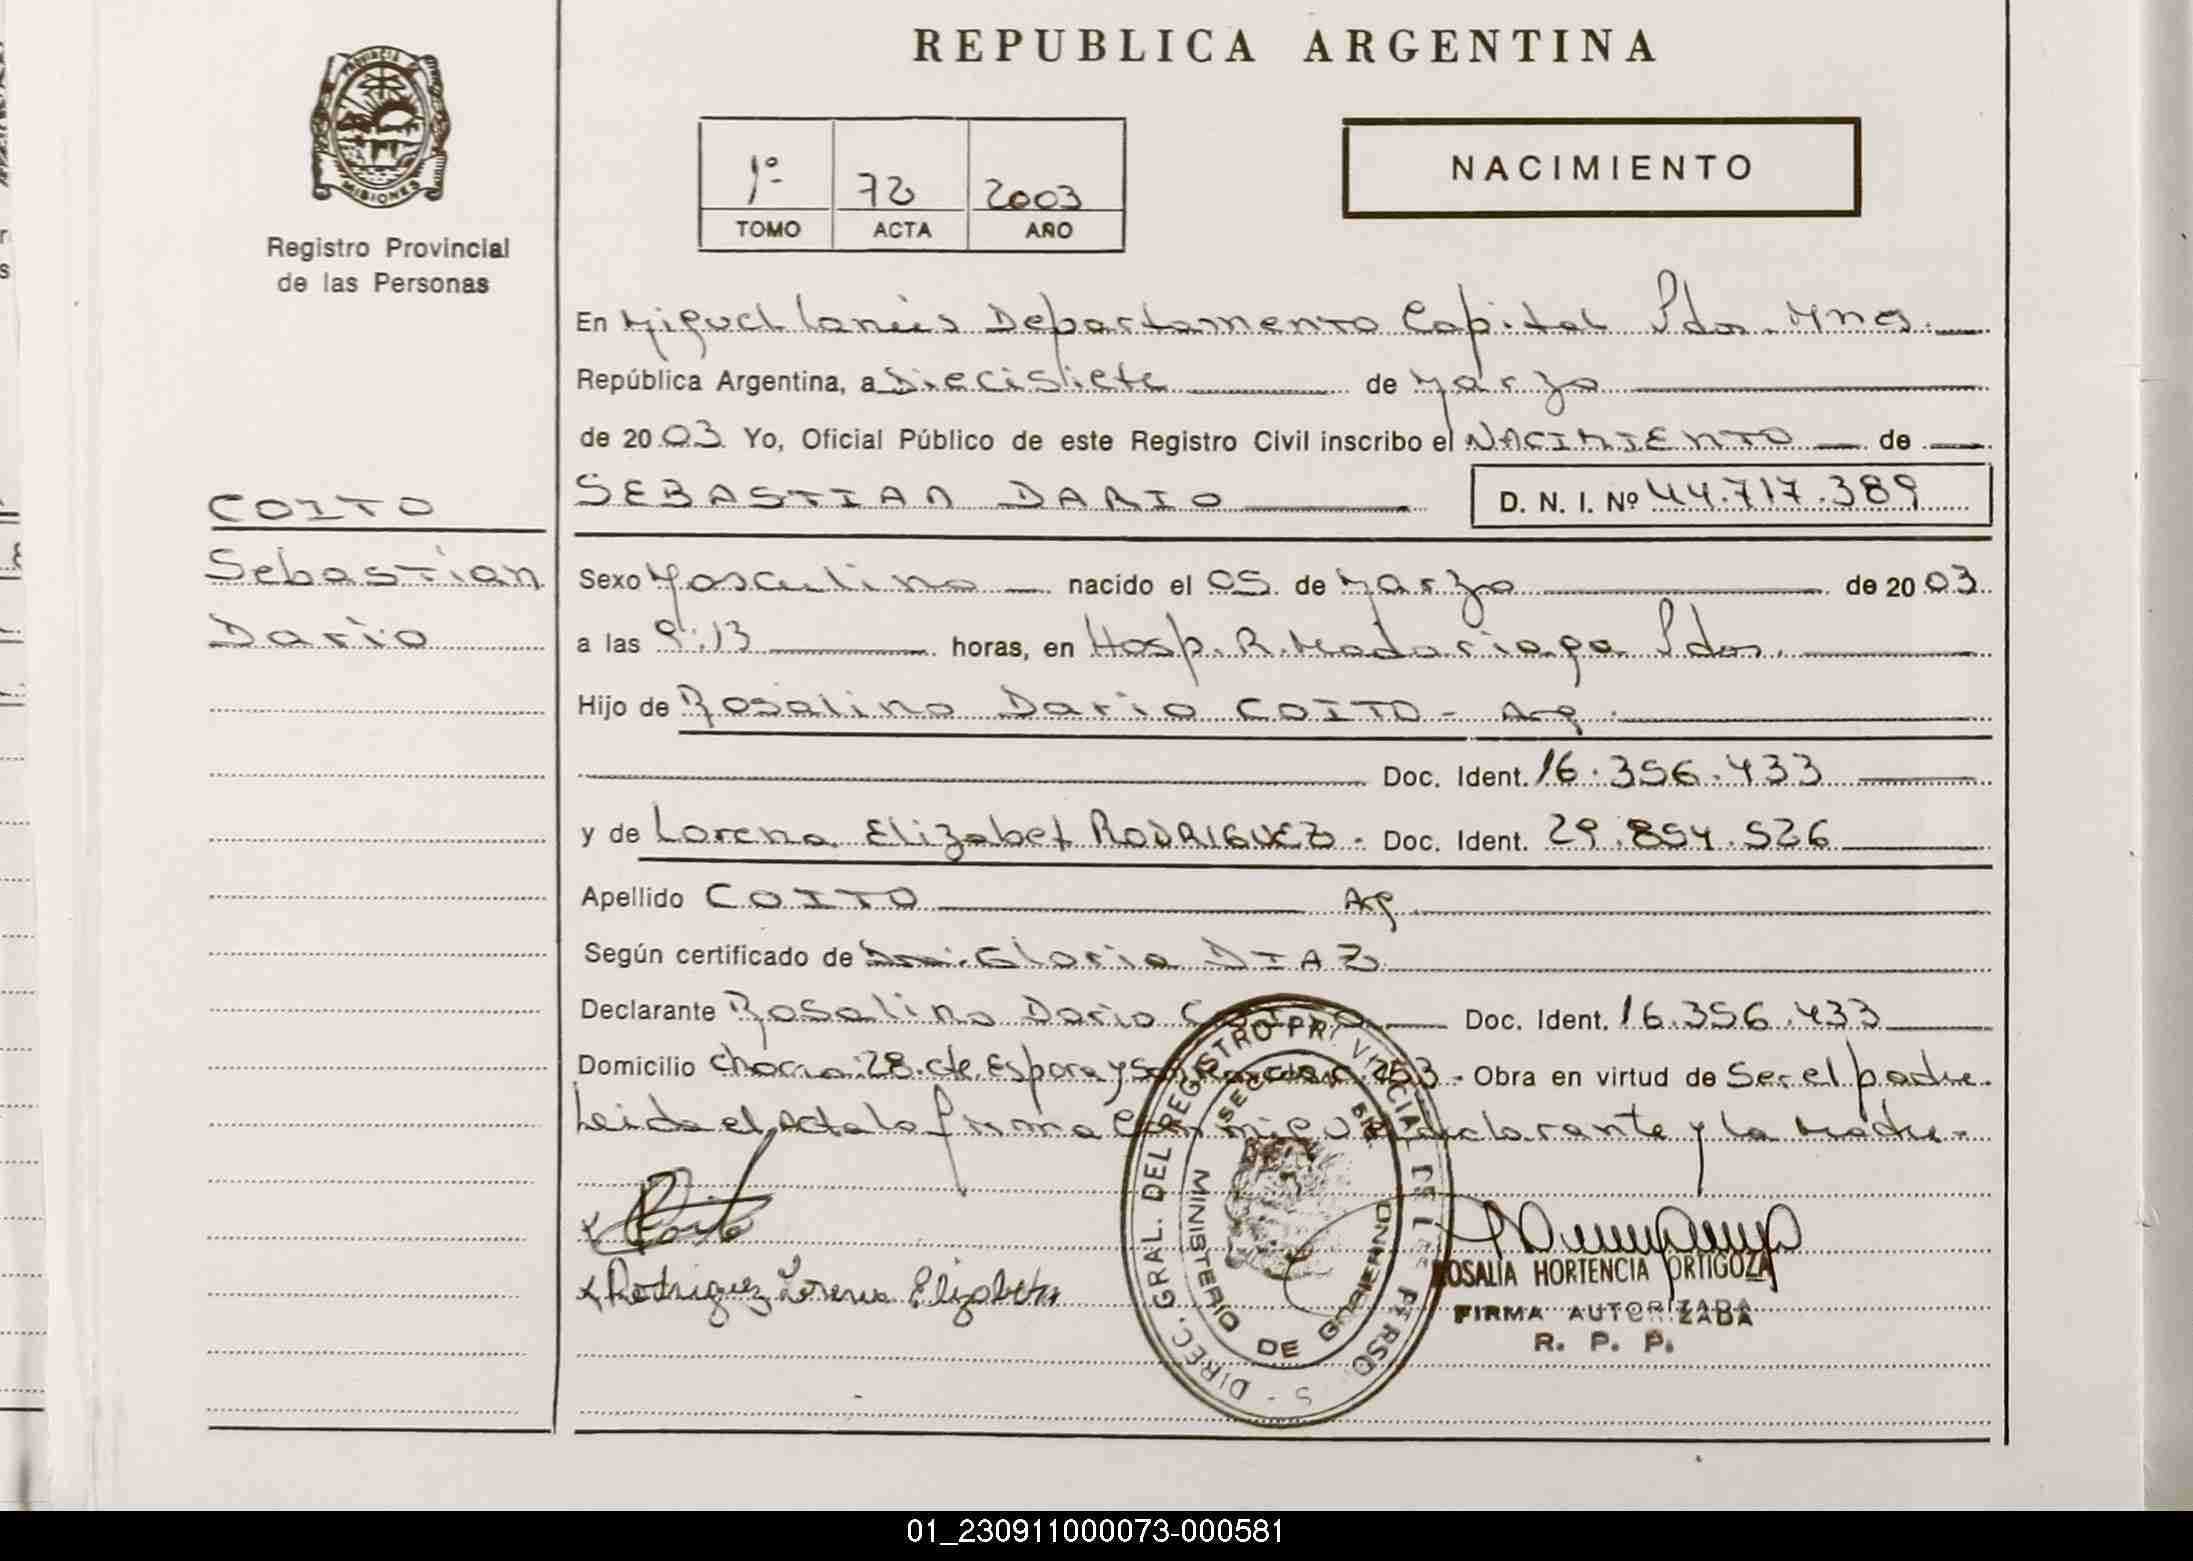 REPUBLICA ARGENTINA
PROVINCIA
MISIONES
Registro Provincial
de las Personas
1º 72 2003
TOMO ACTA AÑO
NACIMIENTO
En Miguel Lanús Departamento Capital Pdas. Mnes.
República Argentina, a Diecisiete de Marzo
de 2003 Yo, Oficial Público de este Registro Civil inscribo el NACIMIENTO de
SEBASTIAN DARIO D. N. I. Nº 44.717.389
COITO
Sebastian
Dario
Sexo Masculino nacido el 05 de Marzo de 2003
a las 9:13 horas, en Hosp. R. Madariaga Pdas.
Hijo de Rosalino Dario COITO - Arg.
Doc. Ident. 16.356.433
y de Lorena Elizabet RODRIGUEZ - Doc. Ident. 29.854.526
Apellido COITO Arg.
Según certificado de Dra. Gloria DIAZ
Declarante Rosalino Dario COITO Doc. Ident. 16.356.433
Domicilio Chacra 28. cte. Espora y 253 - Obra en virtud de Ser el padre.
Leida el Acta la firma Con migo el declarante y la Madre -
x Coito
x Rodriguez Lorena Elizabeth
DIREC. GRAL. DEL REGISTRO PROVINCIAL DE LAS PERSONAS
MINISTERIO DE GOBIERNO
ROSALIA HORTENCIA ORTIGOZA
FIRMA AUTORIZADA
R. P. P.
01_230911000073-000581